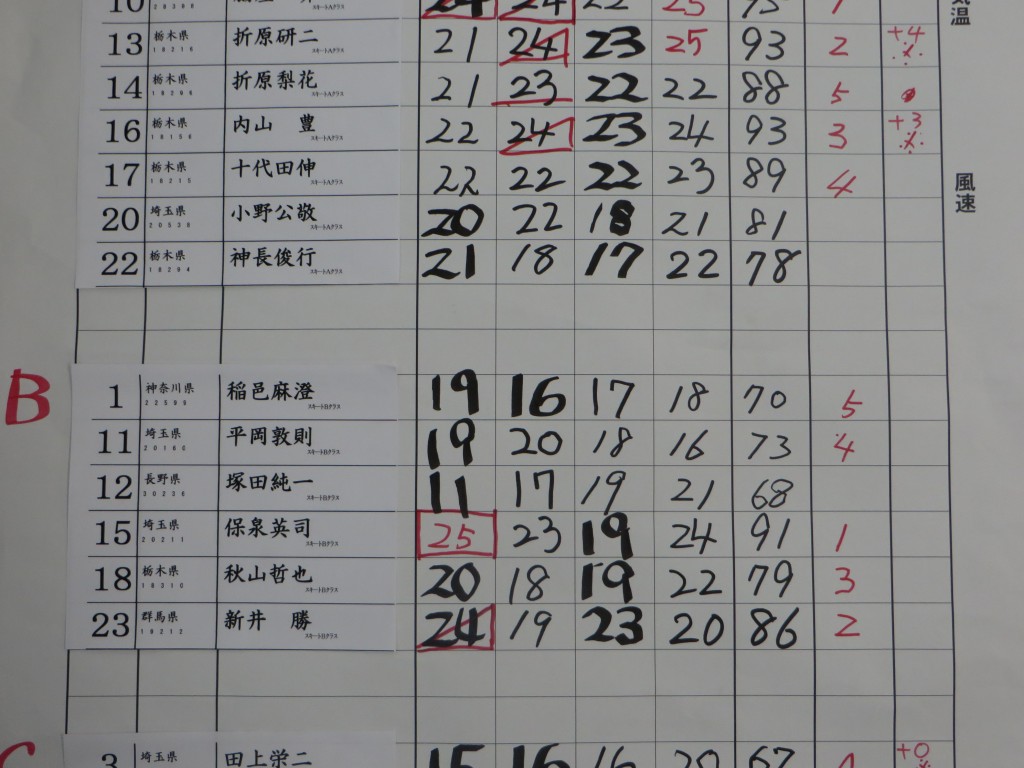 10 24 24 22 25 95 1
気温
13 栃木県 折原研二 21 24 23 25 93 2 +4
18216 スキートAクラス
14 栃木県 折原梨花 21 23 22 22 88 5
スキートAクラス
16 栃木県 内山 豊 22 24 23 24 93 3 +3
スキートAクラス
風速
17 栃木県 十代田伸 22 22 22 23 89 4
18215 スキートAクラス
20 埼玉県 小野公敬 20 22 18 21 81
20538 スキートAクラス
22 栃木県 神長俊行 21 18 17 22 78
スキートAクラス
B
1 神奈川県 稲邑麻澄 19 16 17 18 70 5
22599 スキートBクラス
11 埼玉県 平岡敦則 19 20 18 16 73 4
20160 スキートBクラス
12 長野県 塚田純一 11 17 19 21 68
30236 スキートBクラス
15 埼玉県 保泉英司 25 23 19 24 91 1
20211 スキートBクラス
18 栃木県 秋山哲也 20 18 19 22 79 3
18310 スキートBクラス
23 群馬県 新井 勝 24 19 23 20 86 2
19212 スキートBクラス
C
3 埼玉県 田上栄二 15 16 16 20 67 +0